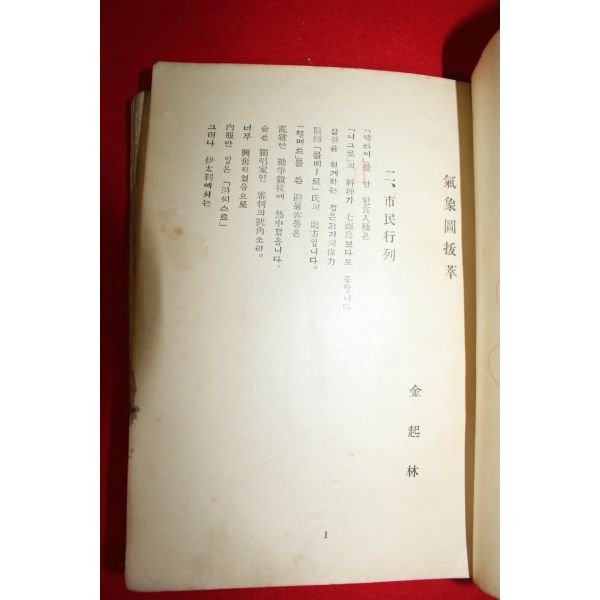 氣象圖拔萃
金起林
二、市民行列
「넥타이」를 한 흰食人種은
「니그로」의 料理가 七面鳥보다도 좋답니다
살갈을 희게하는 검은고기의 偉力
醫師「콜베—르」氏의 處方입니다.
「헬메트」를 쓴 避暑客들은
亂雜한 戰爭競技에 熱中했습니다.
슲은 獨唱家인 審判의 號角소리.
너무 興奮하였음으로
內服만 입은「파씨스트」
그러나 伊太利에서는
1